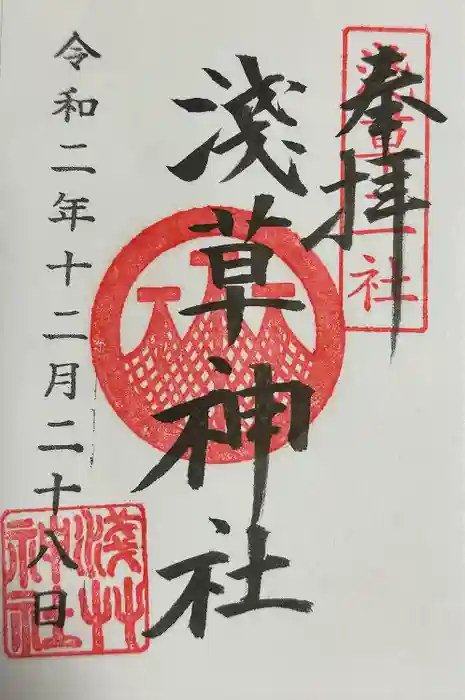 奉拝
淺草神社
令和二年十二月二十八日
淺草
神社